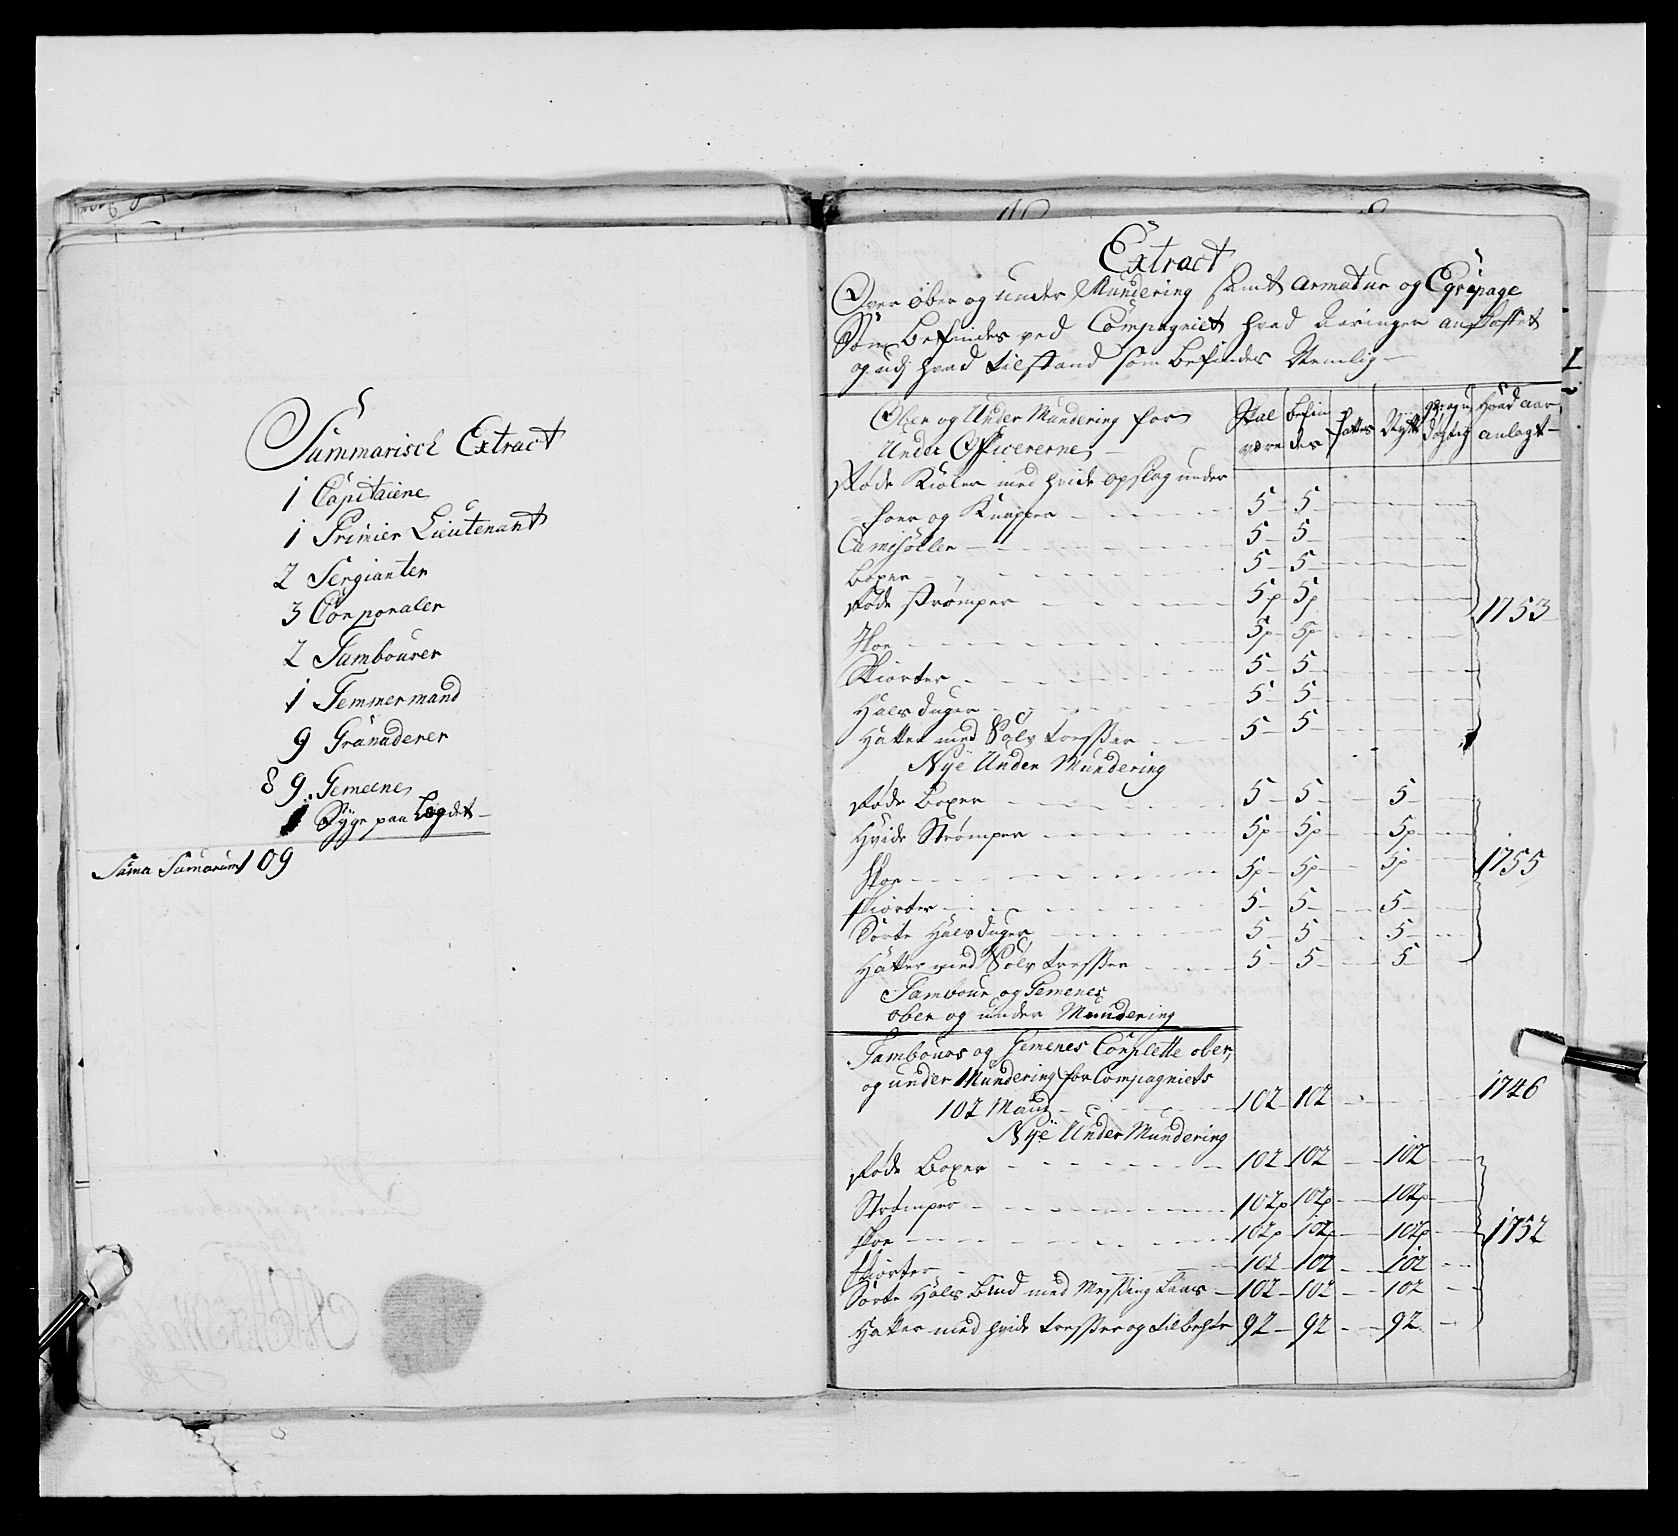 Summarisch Extract
1 Capitaine
1 Primier Lieutenant
2 Sergianter
3 Corporaler
2 Tambourer
1 Temmermand
9 Granaderer
89. Gemeene
1 Syge paa Legdet
Suma Sumarum 109
Extract
Over Ober og under Mundering samt Armatur og Eqvipage
Som befindes ved Compagniet hvad Aaringer anskaffet
og udj hvad tilstand som befindes Nemlig
Ober og Under Mundering for
Under Officererne
Skal være
befindes
fattes
Nytt
dygtig
hvad aar anlagt
Røde Kioler med hvide opslag under
foer og Knapper 5 5
Camisoller 5 5
Boxer 5 5
Røde strømper 5p 5p 1753
Skoe 5p 5p
Skiorter 5 5
Halsduger 5 5
Hatter med Sølv tresser 5 5
Nye Under Mundering
Røde Boxer 5 5 5
Hvide Strømper 5p 5p 5p
Skoe 5p 5p 5p 1755
Skiorter 5 5 5
Sorte Halsduger 5 5 5
Hatter med Sølv tresser 5 5 5
Tambour og Gemenes
ober og under Mundering
Tambours og Gemenes Complette ober,
og under Mundering for Compagniets
102 Mand 102 102 1746
Nye Under Mundering
Røde Boxer 102 102 102
Strømper 102p 102p 102p
Skoe 102p 102p 102p 1752
Skiorter 102 102 102
Sorte Hals Bind med Messing Laas 102 102 102
Hatter med hvide tresser og tilbehør 92 92 92